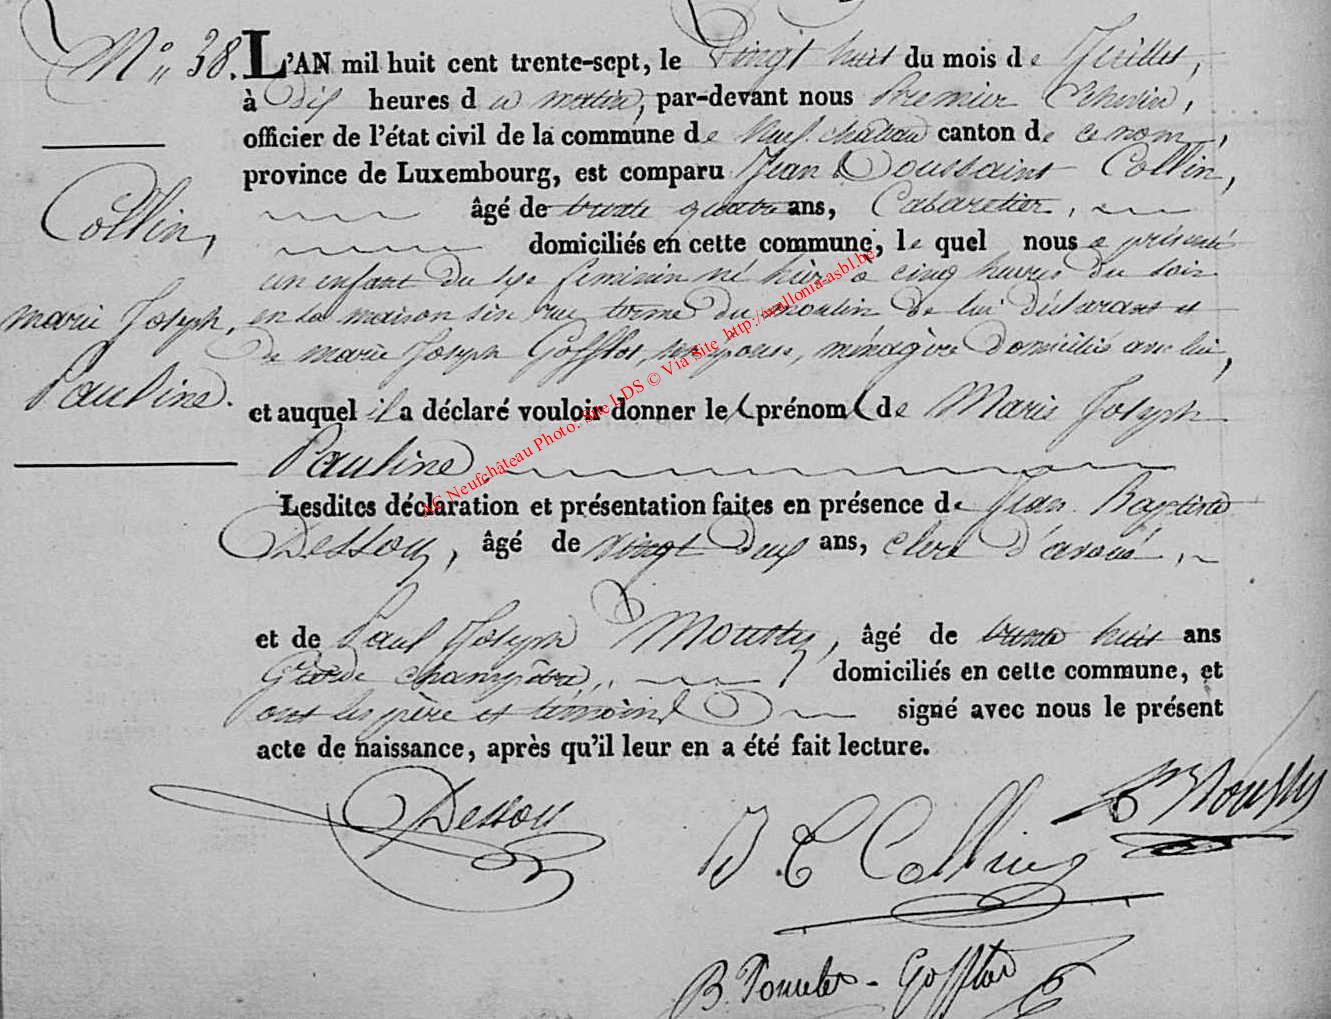 N° 38.
L'AN mil huit cent trente-sept, le Vingt huit du mois de Juillet,
à Dix heures du matin, par-devant nous Premier Echevin,
officier de l'état civil de la commune de Neufchateau canton de ce nom,
province de Luxembourg, est comparu Jean Toussaint Collin,
âgé de trente quatre ans, Cabaretier,
domiciliés en cette commune, le quel nous a présenté
un enfant du sexe feminin né hier à cinq heures du soir
en sa maison sise rue du moulin de lui déclarant et
de marie Joseph Gofflot, son epouse, ménagère domiciliés avec lui,
et auquel il a déclaré vouloir donner les prénoms de Marie Joseph
Pauline
Lesdites déclaration et présentation faites en présence de Jean Baptiste
Dessoy, âgé de vingt deux ans, clerc d'avoué,
et de Paul Joseph Mousty, âgé de trente huit ans
Garde champêtre, domiciliés en cette commune, et
ont les père et témoins signé avec nous le présent
acte de naissance, après qu'il leur en a été fait lecture.
Collin,
marie Joseph,
Pauline.
Dessoy
P Mousty
J T Collin
Gofflot
AC Neufchâteau Photo. Site LDS © Via Site http://wallonia-asbl.be